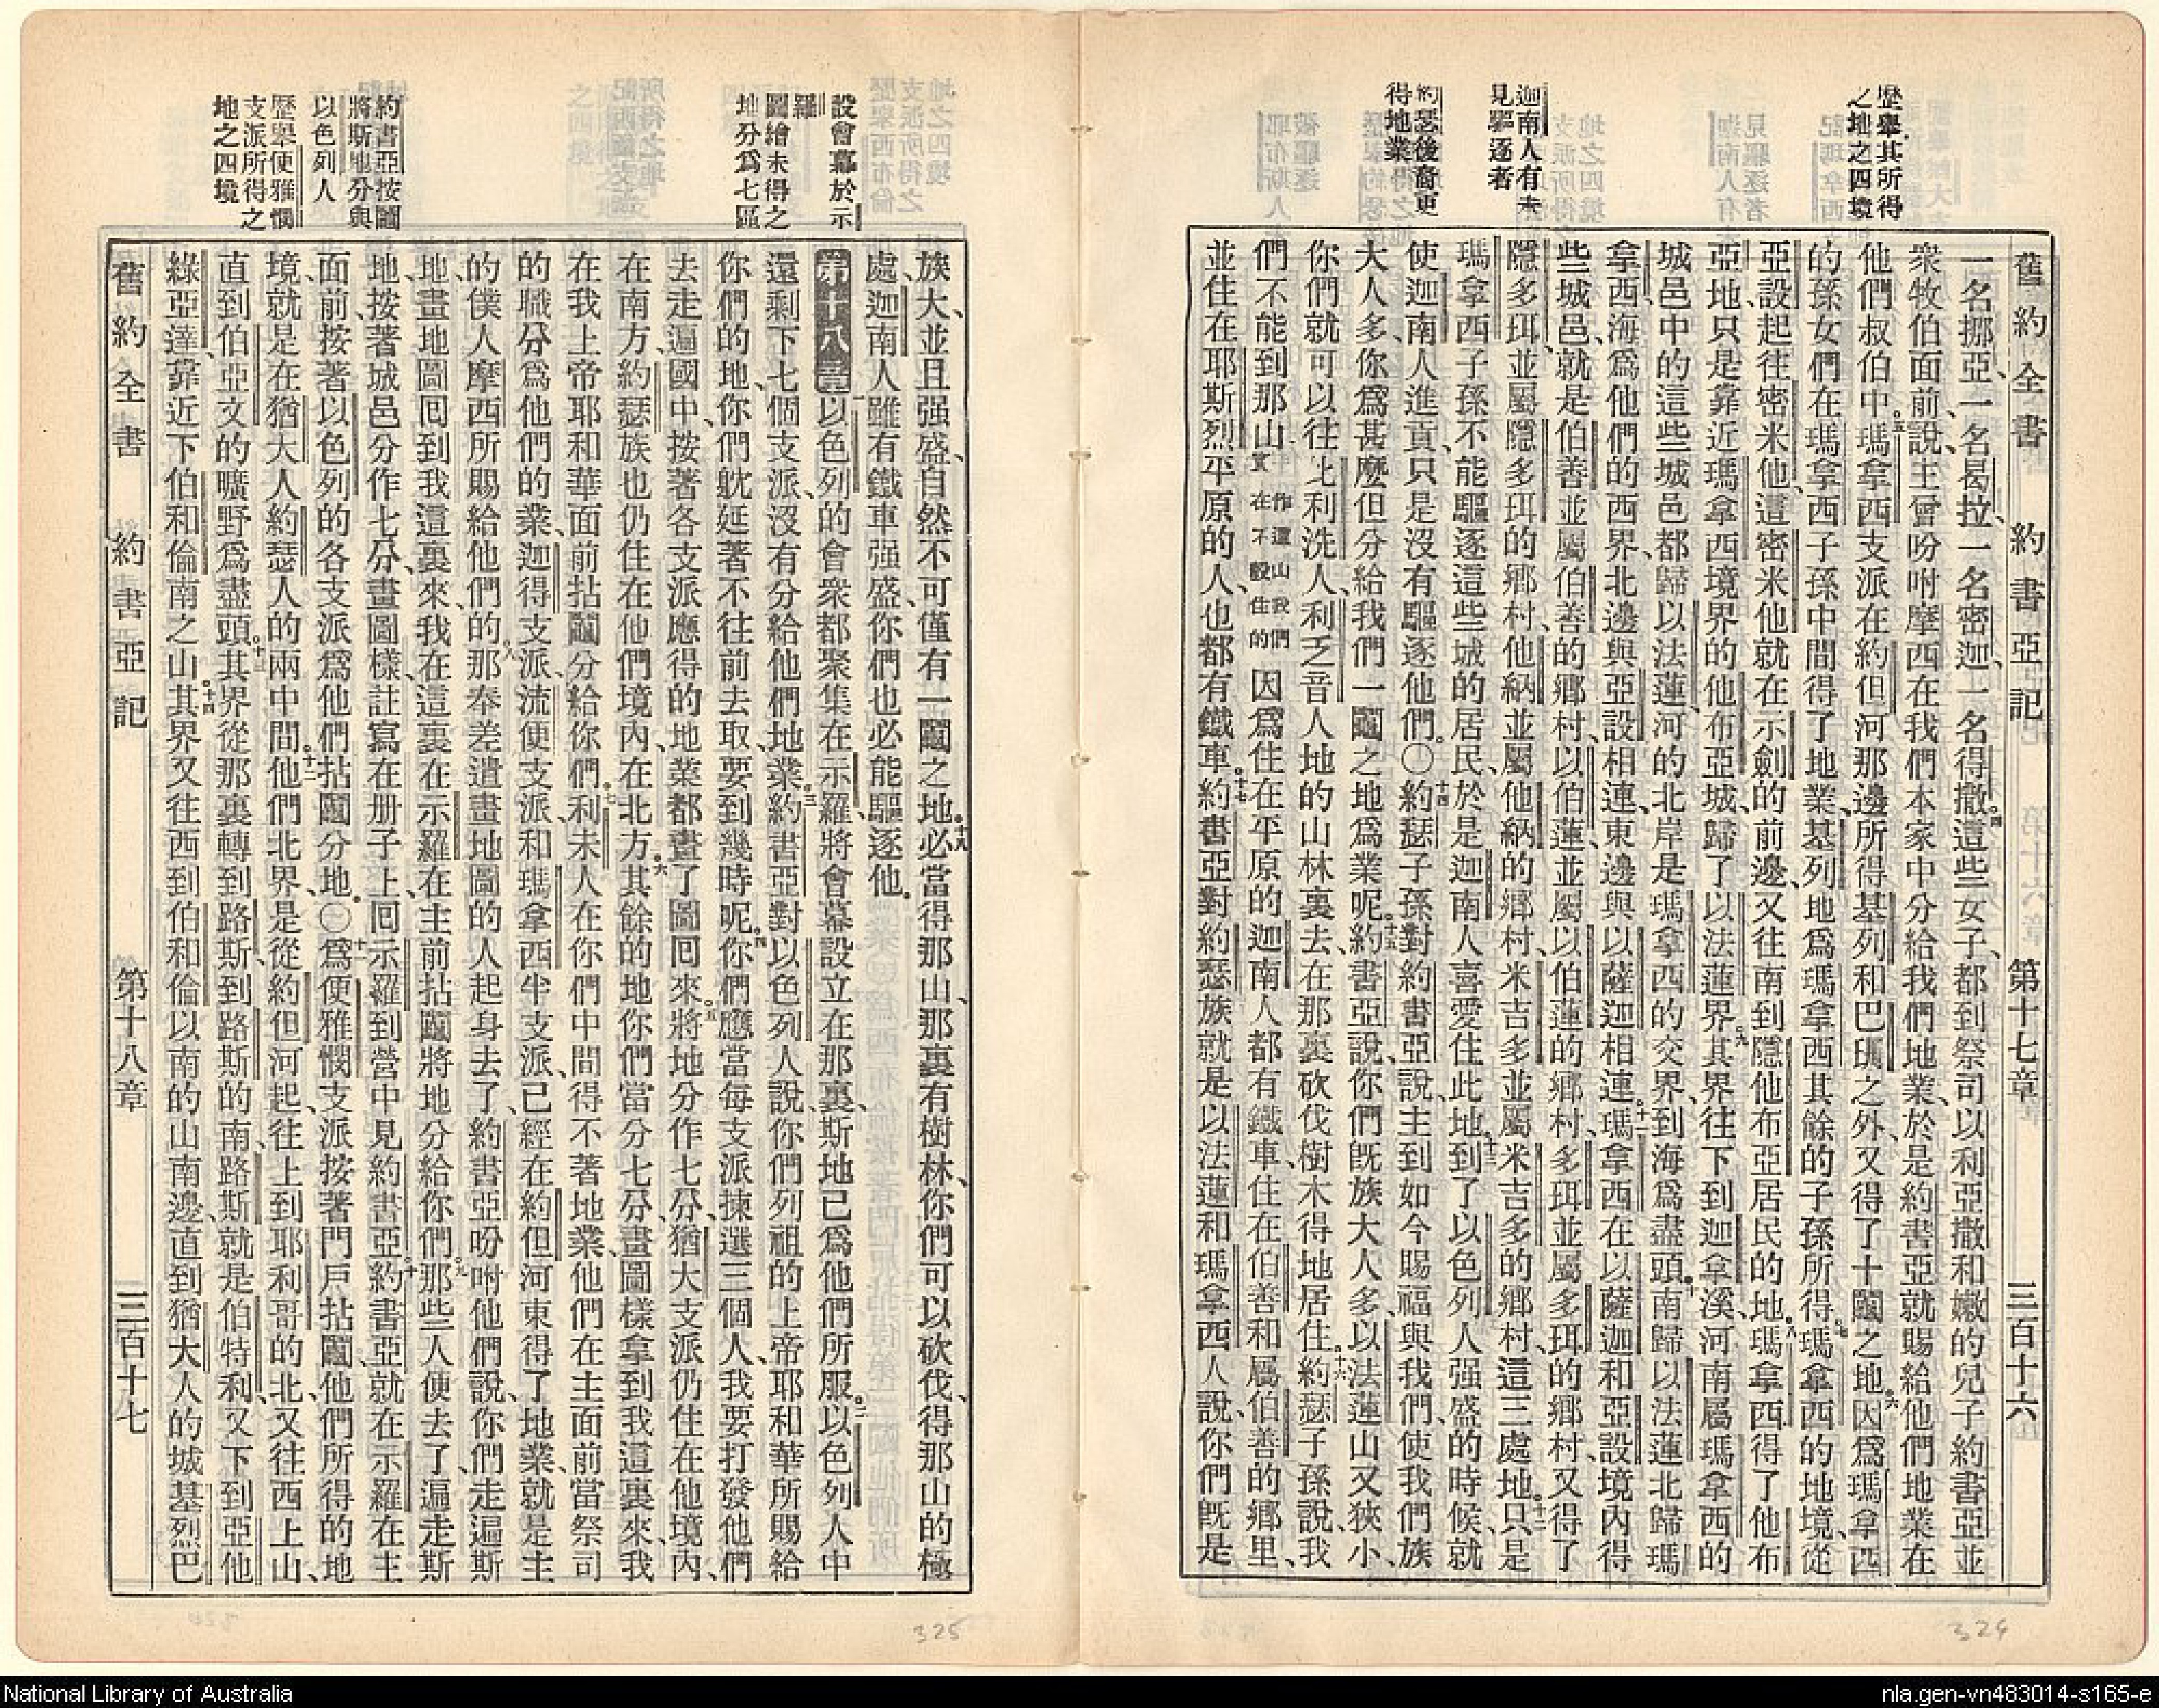 舊約全書 約書亞記 第十七章 三百十六
歷舉其所得
之地之四境
迦南人有未
見驅逐者
約瑟後裔更
得地業
一名挪亞、一名曷拉、一名密迦、一名得撒、四這些女子、都到祭司以利亞撒和嫩的兒子約書亞並
衆牧伯面前說、主曾吩咐摩西在我們本家中分給我們地業、於是約書亞就賜給他們地業在
他們叔伯中。五瑪拿西支派在約但河那邊所得基列和巴珊之外、又得了十鬮之地。六因爲瑪拿西
的孫女們在瑪拿西子孫中間得了地業、基列地爲瑪拿西其餘的子孫所得。七瑪拿西的地境、從
亞設起往密米他、這密米他就在示劍的前邊、又往南到隱他布亞居民的地。八瑪拿西得了他布
亞地、只是靠近瑪拿西境界的他布亞城、歸了以法蓮界。九其界往下到迦拿溪、河南屬瑪拿西的
城邑中的這些城邑都歸以法蓮、河的北岸是瑪拿西的交界、到海爲盡頭。十南歸以法蓮北歸瑪
拿西、海爲他們的西界、北邊與亞設相連、東邊與以薩迦相連。十一瑪拿西在以薩迦和亞設境內得
些城邑、就是伯善並屬伯善的鄉村、以伯蓮並屬以伯蓮的鄉村、多珥並屬多珥的鄉村、又得了
隱多珥並屬隱多珥的鄉村、他納並屬他納的鄉村、米吉多並屬米吉多的鄉村、這三處地。十二只是
瑪拿西子孫不能驅逐這些城的居民、於是迦南人喜愛住此地。十三到了以色列人强盛的時候、就
使迦南人進貢、只是沒有驅逐他們。〇十四約瑟子孫對約書亞說、主到如今賜福與我們、使我們族
大人多、你爲甚麼但分給我們一鬮之地爲業呢。十五約書亞說、你們旣族大人多、以法蓮山又狹小、
你們就可以往比利洗人、利乏音人地的山林裏去、在那裏砍伐樹木得地居住。十六約瑟子孫說、我
們不能到那山作這山我們實在不彀住的因爲住在平原的迦南人都有鐵車、住在伯善和屬伯善的鄉里、
並住在耶斯烈平原的人、也都有鐵車。十七約書亞對約瑟族就是以法蓮和瑪拿西人說、你們旣是
設會幕於示
羅
圖繪未得之
地分爲七區
約書亞按鬮
將斯地分與
以色列人
歷舉便雅憫
支派所得之
地之四境
族大、並且强盛、自然不可僅有一鬮之地。十八必當得那山、那裏有樹林、你們可以砍伐、得那山的極
處、迦南人雖有鐵車强盛、你們也必能驅逐他。
第十八章 一以色列的會衆都聚集在示羅將會幕設立在那裏、斯地已爲他們所服。二以色列人中
還剩下七個支派、沒有分給他們地業。三約書亞對以色列人說、你們列祖的上帝耶和華所賜給
你們的地、你們躭延著不往前去取、要到幾時呢。四你們應當每支派揀選三個人、我要打發他們
去走遍國中、按著各支派應得的地業都畫了圖回來。五將地分作七分、猶大支派仍住在他境內、
在南方、約瑟族也仍住在他們境內、在北方。六其餘的地你們當分七分、畫圖樣拿到我這裏來、我
在我上帝耶和華面前拈鬮分給你們。七利未人在你們中間得不著地業、他們在主面前當祭司
的職分爲他們的業、迦得支派、流便支派和瑪拿西半支派、已經在約但河東得了地業、就是主
的僕人摩西所賜給他們的。八那奉差遣畫地圖的人起身去了、約書亞吩咐他們說、你們走遍斯
地、畫地圖回到我這裏來、我在這裏在示羅在主前拈鬮將地分給你們。九那些人便去了、遍走斯
地、按著城邑分作七分、畫圖樣、註寫在册子上、回示羅到營中見約書亞。十約書亞就在示羅在主
面前、按著以色列的各支派爲他們拈鬮分地。〇十一爲便雅憫支派按著門戶拈鬮、他們所得的地
境、就是在猶大人約瑟人的兩中間。十二他們北界、是從約但河起、往上到耶利哥的北、又往西上山、
直到伯亞文的曠野爲盡頭。十三其界從那裏轉到路斯、到路斯的南、路斯就是伯特利、又下到亞他
綠亞達、靠近下伯和倫南之山。十四其界又往西到伯和倫以南的山南邊、直到猶大人的城基烈巴
舊約全書 約書亞記 第十八章 三百十七
324
325
National Library of Australia
nla.gen-vn483014-s165-e